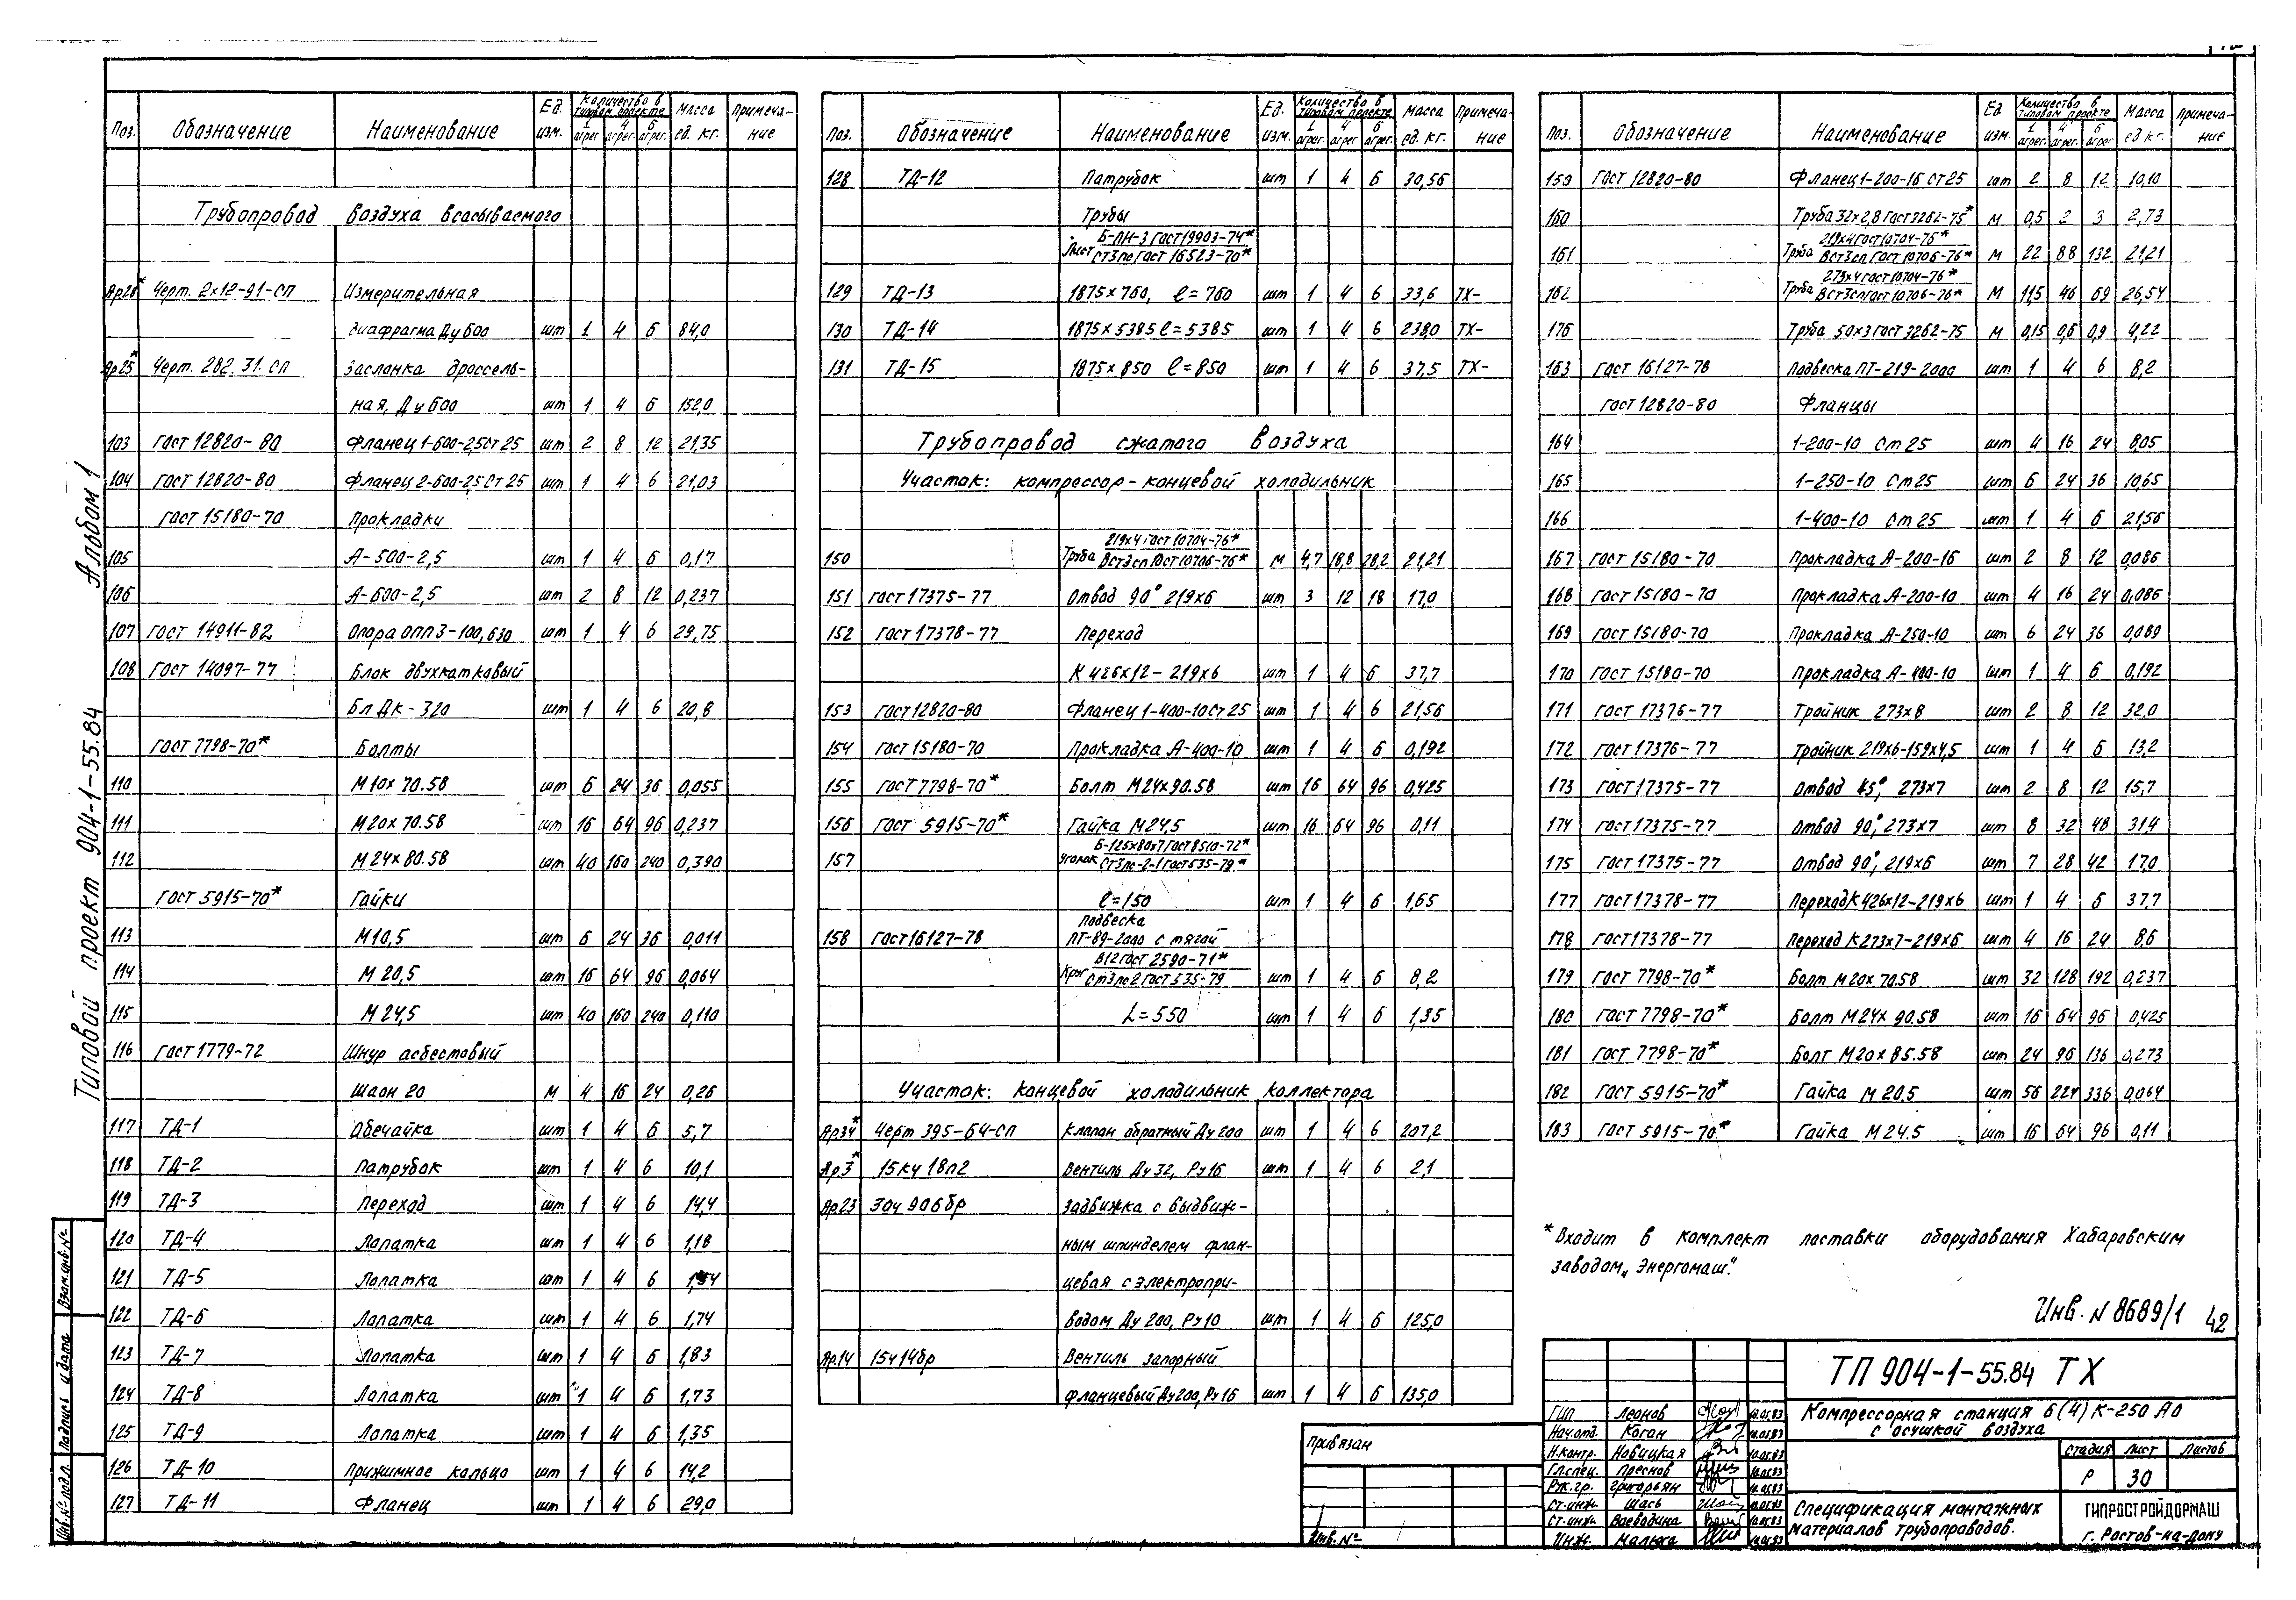 Типовой проект 904-1-55.84 Альбом 1
Поз. Обозначение Наименование Ед. изм. Количество в типовом проекте 1 агрег. 4 агрег. 6 агрег. Масса ед. кг. Примечание
Трубопровод воздуха всасываемого
Ар26* Черт. 2х12-91-СП Измерительная
диафрагма Ду600 шт 1 4 6 84,0
Ар25* Черт. 282.31.СП Заслонка дроссель-
ная, Ду600 шт 1 4 6 152,0
103 ГОСТ 12820-80 Фланец 1-600-2,5 Ст 25 шт 2 8 12 21,35
104 ГОСТ 12820-80 Фланец 2-600-2,5 Ст 25 шт 1 4 6 21,03
ГОСТ 15180-70 Прокладки
105 А-500-2,5 шт 1 4 6 0,17
106 А-600-2,5 шт 2 8 12 0,237
107 ГОСТ 14911-82 Опора ОПП3-100,630 шт 1 4 6 29,75
108 ГОСТ 14097-77 Блок двухкатковый
Бл ДК-320 шт 1 4 6 20,8
ГОСТ 7798-70* Болты
110 М10х70.58 шт 6 24 36 0,055
111 М20х70.58 шт 16 64 96 0,237
112 М24х80.58 шт 40 160 240 0,390
ГОСТ 5915-70* Гайки
113 М10,5 шт 6 24 36 0,011
114 М20,5 шт 16 64 96 0,064
115 М24,5 шт 40 160 240 0,110
116 ГОСТ 1779-72 Шнур асбестовый
Шаон 20 М 4 16 24 0,26
117 ТД-1 Обечайка шт 1 4 6 5,7
118 ТД-2 Патрубок шт 1 4 6 10,1
119 ТД-3 Переход шт 1 4 6 14,4
120 ТД-4 Лопатка шт 1 4 6 1,18
121 ТД-5 Лопатка шт 1 4 6
122 ТД-6 Лопатка шт 1 4 6 1,74
123 ТД-7 Лопатка шт 1 4 6 1,83
124 ТД-8 Лопатка шт 1 4 6 1,73
125 ТД-9 Лопатка шт 1 4 6 1,35
126 ТД-10 Прижимное кольцо шт 1 4 6 14,2
127 ТД-11 Фланец шт 1 4 6 29,0
Поз. Обозначение Наименование Ед. изм. Количество в типовом проекте 1 агрег. 4 агрег 6 агрег. Масса ед. кг. Примечание
128 ТД-12 Патрубок шт 1 4 6 30,56
Трубы
Лист Б-ПН-3 ГОСТ 19903-74* / Ст3пс ГОСТ 16523-70*
129 ТД-13 1875х760, ℓ=760 шт 1 4 6 33,6 ТХ-
130 ТД-14 1875х5385 ℓ=5385 шт 1 4 6 238,0 ТХ-
131 ТД-15 1875х850 ℓ=850 шт 1 4 6 37,5 ТХ-
Трубопровод сжатого воздуха
Участок: компрессор-концевой холодильник
150 Труба 219х4 ГОСТ 10704-76* / ВСт3сп ГОСТ 10706-76* М 4,7 18,8 28,2 21,21
151 ГОСТ 17375-77 Отвод 90° 219х6 шт 3 12 18 17,0
152 ГОСТ 17378-77 Переход
К 426х12-219х6 шт 1 4 6 37,7
153 ГОСТ 12820-80 Фланец 1-400-10 Ст 25 шт 1 4 6 21,56
154 ГОСТ 15180-70 Прокладка А-400-10 шт 1 4 6 0,192
155 ГОСТ 7798-70* Болт М24х90.58 шт 16 64 96 0,425
156 ГОСТ 5915-70* Гайка М24,5 шт 16 64 96 0,11
157 Уголок Б-125х80х7 ГОСТ 8510-72* / Ст3пс-2-1 ГОСТ 535-79*
ℓ=150 шт 1 4 6 1,65
158 ГОСТ 16127-78 Подвеска
ПГ-89-2000 с тягой
Круг В12 ГОСТ 2590-71* / Ст3пс2 ГОСТ 535-79 шт 1 4 6 8,2
L=550 шт 1 4 6 1,35
Участок: Концевой холодильник коллектора
Ар34* Черт 395-64-СП Клапан обратный Ду200 шт 1 4 6 207,2
Ар3* 15кч 18п2 Вентиль Ду 32, Ру16 шт 1 4 6 2,1
Ар23 30ч 906бр Задвижка с выдвиж-
ным шпинделем флан-
цевая с электропри-
водом Ду 200, Ру10 шт 1 4 6 125,0
Ар14 15ч14бр Вентиль запорный
фланцевый Ду200, Ру16 шт 1 4 6 135,0
Поз. Обозначение Наименование Ед изм. Количество в типовом проекте 1 агрег. 4 агрег. 6 агрег Масса ед кг. Примечание
159 ГОСТ 12820-80 Фланец 1-200-16 Ст 25 шт 2 8 12 10,10
160 Труба 32х2,8 ГОСТ 3262-75* М 0,5 2 3 2,73
161 Труба 219х4 ГОСТ 10704-76* / ВСт3сп ГОСТ 10706-76* М 22 88 132 21,21
162 Труба 273х4 ГОСТ 10704-76* / ВСт3сп ГОСТ 10706-76* М 11,5 46 69 26,54
176 Труба 50х3 ГОСТ 3262-75 М 0,15 0,6 0,9 4,22
163 ГОСТ 16127-78 Подвеска ПГ-219-2000 шт 1 4 6 8,2
ГОСТ 12820-80 Фланцы
164 1-200-10 Ст 25 шт 4 16 24 8,05
165 1-250-10 Ст 25 шт 6 24 36 10,65
166 1-400-10 Ст 25 шт 1 4 6 21,56
167 ГОСТ 15180-70 Прокладка А-200-16 шт 2 8 12 0,086
168 ГОСТ 15180-70 Прокладка А-200-10 шт 4 16 24 0,086
169 ГОСТ 15180-70 Прокладка А-250-10 шт 6 24 36 0,089
170 ГОСТ 15180-70 Прокладка А-400-10 шт 1 4 6 0,192
171 ГОСТ 17376-77 Тройник 273х8 шт 2 8 12 32,0
172 ГОСТ 17376-77 Тройник 219х6-159х4,5 шт 1 4 6 13,2
173 ГОСТ 17375-77 Отвод 45°, 273х7 шт 2 8 12 15,7
174 ГОСТ 17375-77 Отвод 90°, 273х7 шт 8 32 48 31,4
175 ГОСТ 17375-77 Отвод 90°, 219х6 шт 7 28 42 17,0
177 ГОСТ 17378-77 Переход К 426х12-219х6 шт 1 4 6 37,7
178 ГОСТ 17378-77 Переход К 273х7-219х6 шт 4 16 24 8,6
179 ГОСТ 7798-70* Болт М20х70.58 шт 32 128 192 0,237
180 ГОСТ 7798-70* Болт М24х90.58 шт 16 64 96 0,425
181 ГОСТ 7798-70* Болт М20х85.58 шт 24 96 136 0,273
182 ГОСТ 5915-70* Гайка М20,5 шт 56 224 336 0,064
183 ГОСТ 5915-70* Гайка М24.5 шт 16 64 96 0,11
*Входит в комплект поставки оборудования Хабаровским
заводом „Энергомаш".
Инв. N 8689/1 42
Привязан
Инв. №
ТП 904-1-55.84 ТХ
Компрессорная станция 6(4)К-250 АО
с осушкой воздуха
ГИП Леонов 10.05.83
Нач.отд. Коган 10.05.83
Н.контр. Новицкая 10.05.83
Гл.спец. Преснов 10.05.83
Рук.гр. Григорьян 10.05.83
Ст.инж. Шась 10.05.83
Ст.инж. Воеводина 10.05.83
Инж. Малюга 10.05.83
Стадия Лист Листов
Р 30
Спецификация монтажных
материалов трубопроводов.
ГИПРОСТРОЙДОРМАШ
г. Ростов-на-Дону
Взам.инв.№
Подпись и дата
Инв.№ подл.